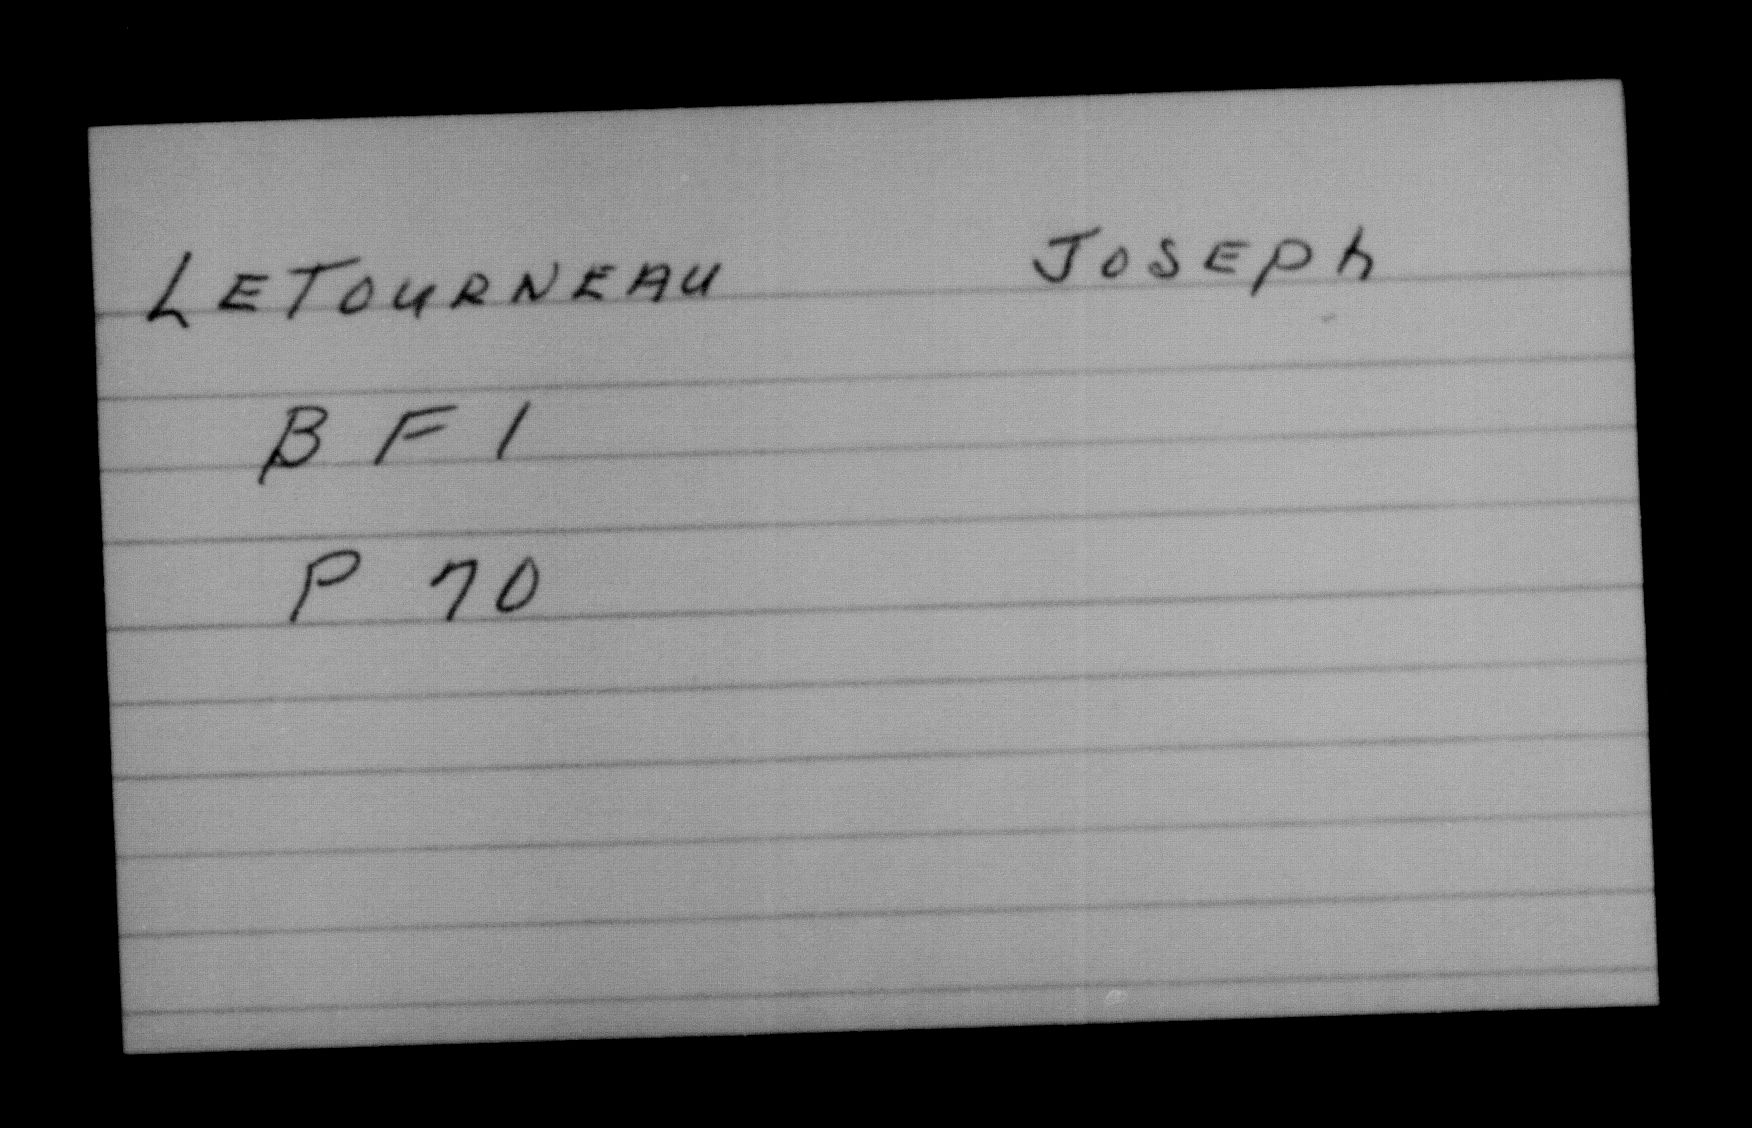 LETOURNEAU JOSEPh
B F 1
P 70